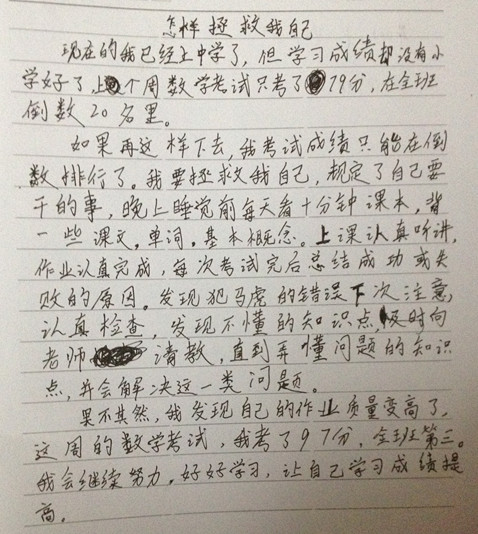 怎样拯救我自己
现在的我已经上中学了,但学习成绩却没有小
学好了,上个周数学考试只考了79分,在全班
倒数20名里。
如果再这样下去,我考试成绩只能在倒
数排行了。我要拯救我自己,规定了自己要
干的事,晚上睡觉前每天看十分钟课本,背
一些课文,单词,基本概念。上课认真听讲,
作业认真完成,每次考试完后总结成功或失
败的原因。发现犯马虎的错误下次注意,
认真检查,发现不懂的知识点及时向
老师请教,直到弄懂问题的知识
点,并会解决这一类问题。
果不其然,我发现自己的作业质量变高了,
这周的数学考试,我考了97分,全班第三。
我会继续努力,好好学习,让自己学习成绩提
高。